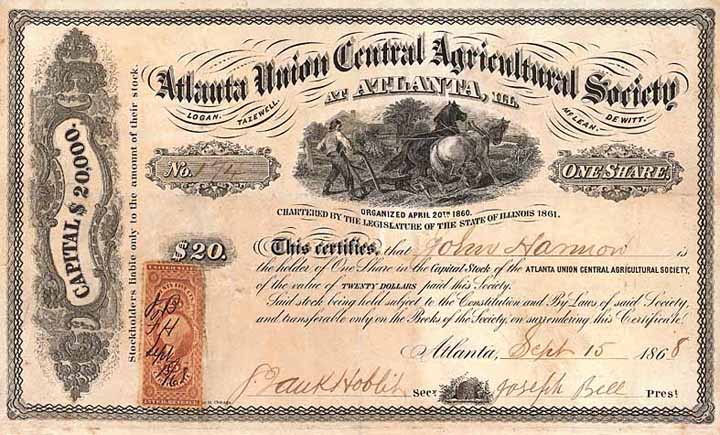 Atlanta Union Central Agricultural Society
AT ATLANTA, ILL.
LOGAN. TAZEWELL. MCLEAN. DE WITT.
No. 174
ONE SHARE.
ORGANIZED APRIL 20TH 1860.
CHARTERED BY THE LEGISLATURE OF THE STATE OF ILLINOIS 1861.
CAPITAL $20,000.
Stockholders liable only to the amount of their stock.
$20.
This certifies, that John Hannon is
the holder of One Share in the Capital Stock of the ATLANTA UNION CENTRAL AGRICULTURAL SOCIETY,
of the value of TWENTY DOLLARS paid this Society.
Said stock being held subject to the Constitution and By Laws of said Society,
and transferable only on the Books of the Society, on surrendering this Certificate.
Atlanta, Sept 15 1868
Frank Hoblit Secy Joseph Bell Prest